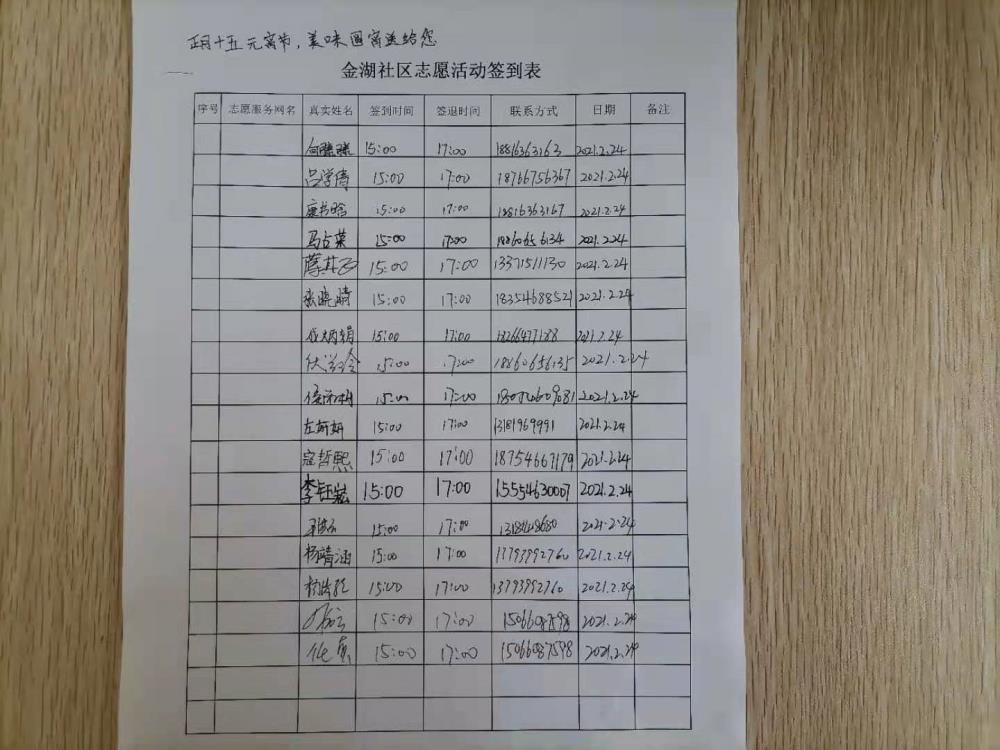 正月十五元宵节,美味团宵送给您
金湖社区志愿活动签到表
序号 志愿服务网名 真实姓名 签到时间 签退时间 联系方式 日期 备注
15:00 17:00 18816363163 2021.2.24
吕学倩 15:00 17:00 18766756367 2021.2.24
康书晗 15:00 17:00 18816363167 2021.2.24
马占荣 15:00 17:00 2021.2.24
15:00 17:00 13371511130 2021.2.24
张晓晴 15:00 17:00 18354688521 2021.2.24
15:00 17:00 18266477188 2021.2.24
15:00 17:00 18860656135 2021.2.24
15:00 17:00 2021.2.24
左妍妍 15:00 17:00 13181969991 2021.2.24
寇哲熙 15:00 17:00 18754667179 2021.2.24
李钰宸 15:00 17:00 15554630007 2021.2.24
15:00 17:00 2021.2.24
杨婧涵 15:00 17:00 2021.2.24
15:00 17:00 13793992760 2021.2.24
15:00 17:00 15066087598 2021.2.24
15:00 17:00 15066087598 2021.2.24